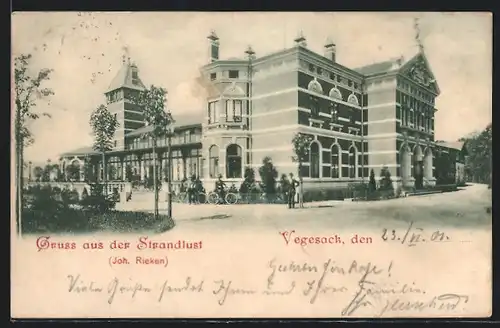 Gruss aus der Strandlust
(Joh. Rieken)
Vegesack, den 23./VI. 01.
Viele Grüße sendet Ihnen und Ihrer
Familie.